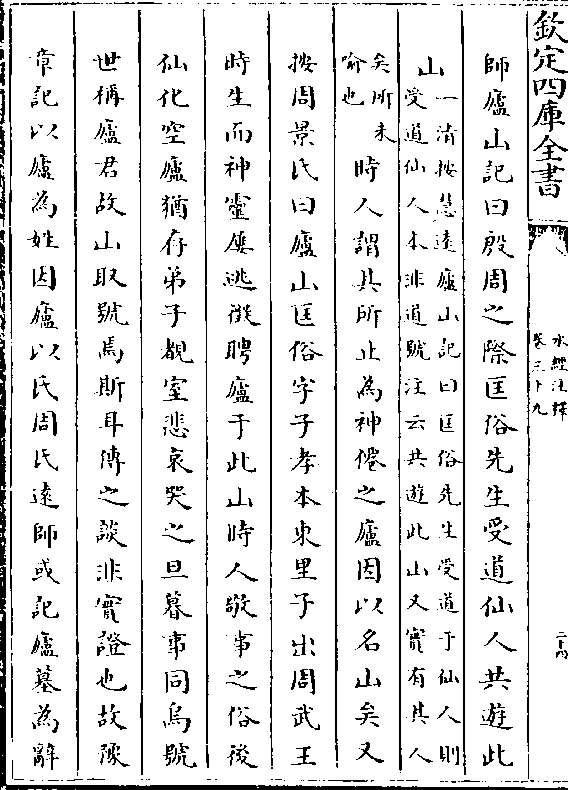 欽定四庫全書
水經注釋
卷三十九
師廬山記曰殷周之際匡俗先生受道仙人共遊此
山
一清按慧逺廬山記曰匡俗先生受道于仙人則
受道仙人本非道號注云共遊此山又實有其人
矣所未
喻也
時人謂其所止為神僊之廬因以名山矣又
按周景氏曰廬山匡俗字子孝本東里子出周武王
時生而神靈屢逃徵聘廬于此山時人敬事之俗後
仙化空廬猶存弟子覩室悲哀哭之旦暮事同烏號
世稱廬君故山取號焉斯耳傳之談非實證也故豫
章記以廬為姓因廬以氏周氏逺師或記廬墓為辭